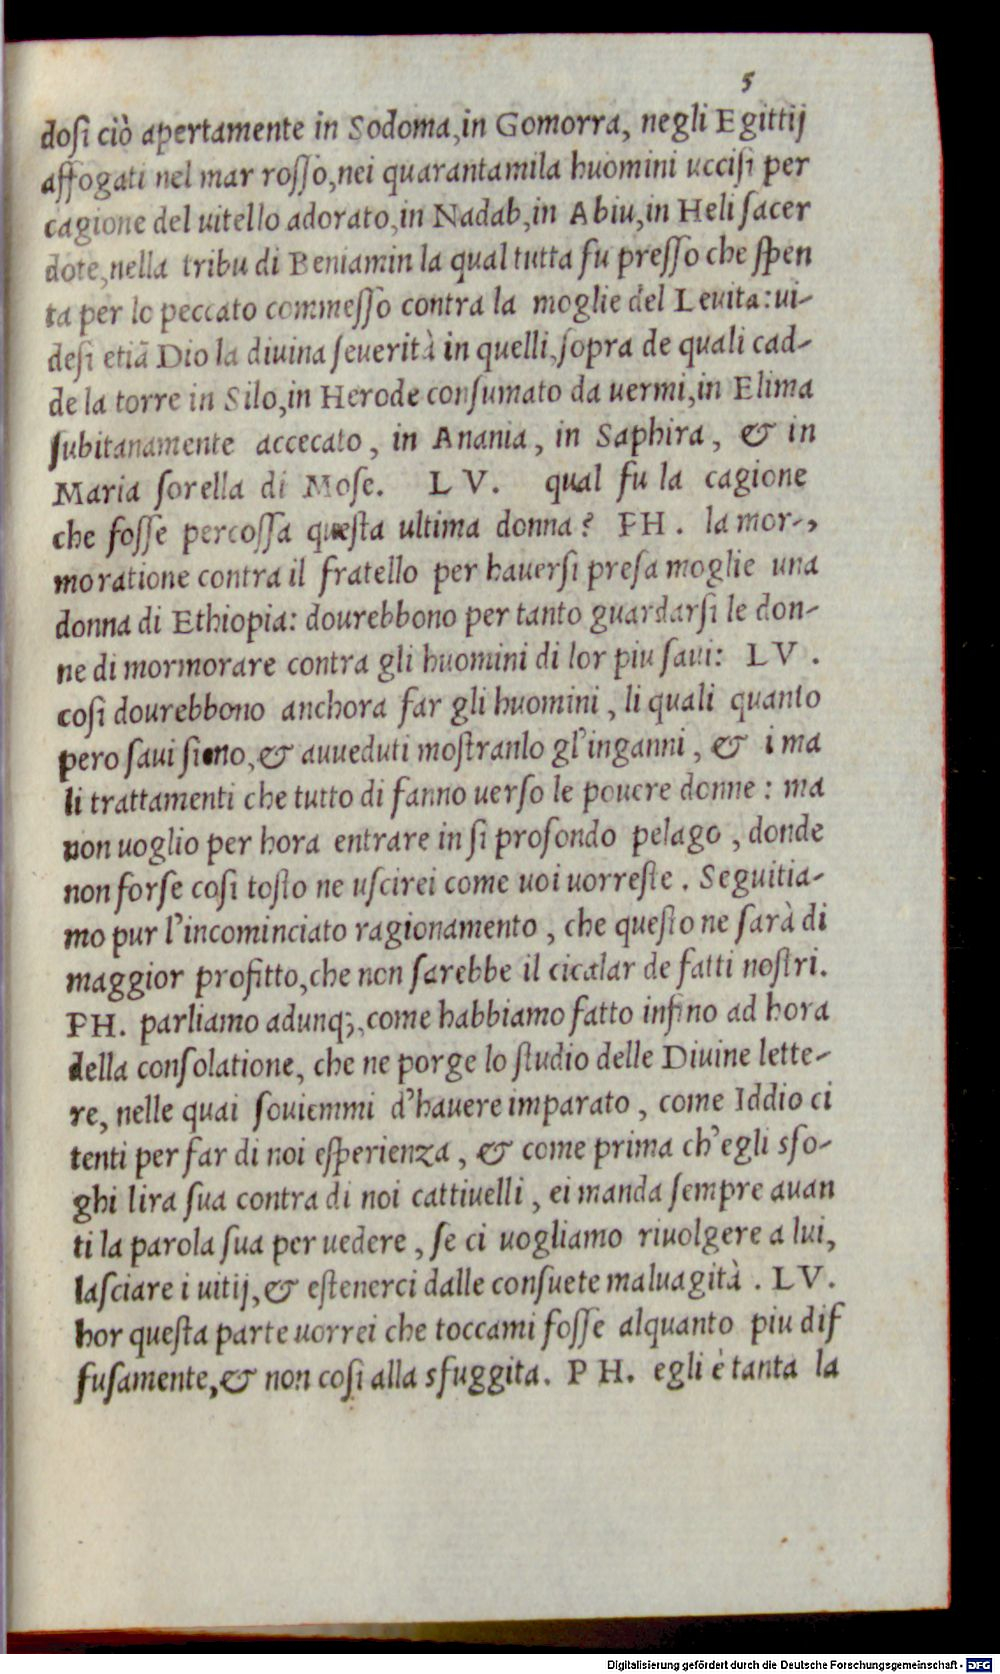 5
dosi ciò apertamente in Sodoma, in Gomorra, negli Egittij
affogati nel mar rosso, nei quarantamila huomini uccisi per
cagione del uitello adorato, in Nadab, in Abiu, in Heli sacer
dote, nella tribu di Beniamin la qual tutta fu presso che spen
ta per lo peccato commesso contra la moglie del Leuita: ui-
desi etiã Dio la diuina seuerità in quelli, sopra de quali cad-
de la torre in Silo, in Herode consumato da uermi, in Elima
subitanamente accecato, in Anania, in Saphira, & in
Maria sorella di Mose. LV. qual fu la cagione
che fosse percossa questa ultima donna? PH. la mor-,
moratione contra il fratello per hauersi presa moglie una
donna di Ethiopia: dourebbono per tanto guardarsi le don-
ne di mormorare contra gli huomini di lor piu saui: LV.
cosi dourebbono anchora far gli huomini, li quali quanto
pero saui sieno, & auueduti mostranlo gl'inganni, & i ma
li trattamenti che tutto di fanno uerso le pouere donne: ma
non uoglio per hora entrare in si profondo pelago, donde
non forse cosi tosto ne uscirei come uoi uorreste. Seguitia-
mo pur l'incominciato ragionamento, che questo ne sarà di
maggior profitto, che non sarebbe il cicalar de fatti nostri.
PH. parliamo adunq;, come habbiamo fatto insino ad hora
della consolatione, che ne porge lo studio delle Diuine lette-
re, nelle quai souiemmi d'hauere imparato, come Iddio ci
tenti per far di noi esperienza, & come prima ch'egli sfo-
ghi lira sua contra di noi cattiuelli, ei manda sempre auan
ti la parola sua per uedere, se ci uogliamo riuolgere a lui,
lasciare i uitij, & estenerci dalle consuete maluagità. LV.
hor questa parte uorrei che toccami fosse alquanto piu dif
fusamente, & non cosi alla sfuggita. PH. egli è tanta la
Digitalisierung gefördert durch die Deutsche Forschungsgemeinschaft - DFG